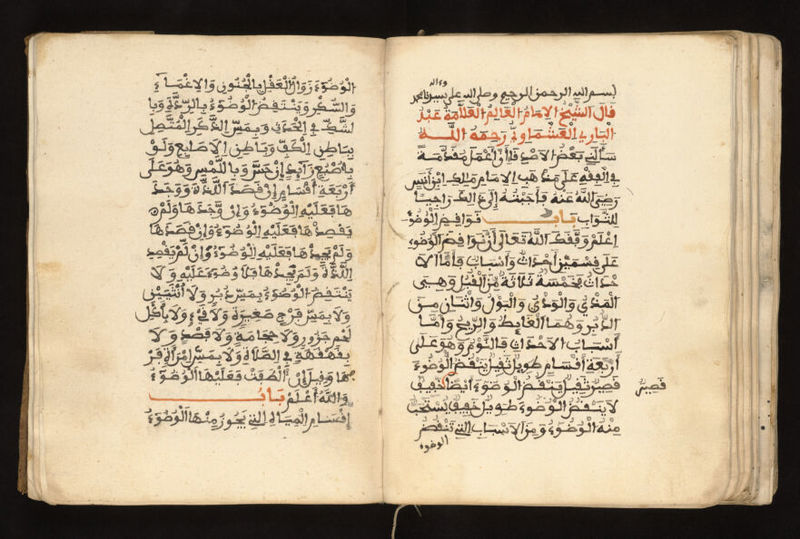 وءاله
بسم الله الرحمن الرحيم وصلى الله على سيدنا محمد
قال الشَّيْخُ الإمَامُ الْعَالِمُ الْعَلَّامَةُ عَبْدُ
الْبَارِي الْعَشْمَاوِيُّ رَحِمَهُ اللَّهُ
سَأَلَنِي بَعْضُ الأصْدِقَاءِ أنْ أعْمَلَ مُقَدِّمَةً
فِي الْفِقْهِ عَلَى مَذْهَبِ الإمَامِ مَالِكِ ابْنِ أَنَسٍ
رَضِيَ اللَّهُ عَنْهُ فَأَجَبْتُهُ إلَى ذَلِكَ رَاجِيًا
لِلثَّوَابِ بَابُ نَوَاقِضِ الْوُضُوءِ
اعْلَمْ وَفَّقَكَ اللَّهُ تَعَالَى أنَّ نَوَاقِضَ الْوُضُوءِ
عَلَى قِسْمَيْنِ أحْدَاثٌ وَأسْبَابٌ فَأمَّا الأ
حْدَاثُ فَخَمْسَةٌ ثَلَاثَةٌ مِنَ الْقُبُلِ وَهِيَ
الْمَذْيُ وَالْوَدْيُ وَالْبَوْلُ وَاثْنَانِ مِنَ
الدُّبُرِ وَهُمَا الْغَائِطُ وَالرِّيحُ وَأمَّا
أسْبَابُ الأحْدَاثِ فَالنَّوْمُ وَهُوَ عَلَى
أرْبَعَةِ أقْسَامٍ طَوِيلٌ ثَقِيلٌ يَنْقُضُ الْوُضُوءَ
قَصِيرٌ ثَقِيلٌ يَنْقُضُ الْوُضُوءَ أيْضًا خَفِيفٌ
قَصِيرٌ
لَا يَنْقُضُ الْوُضُوءَ طَوِيلٌ خَفِيفٌ يُسْتَحَبُّ
مِنْهُ الْوُضُوءُ وَمِنَ الأسْبَابِ الَّتِي تَنْقُضُ
الوضوء
الْوُضُوءَ زَوَالُ الْعَقْلِ بِالْجُنُونِ وَالإغْمَاءِ
وَالسُّكْرِ وَيَنْتَقِضُ الْوُضُوءُ بِالرِّدَّةِ وَبِا
لشَّكِّ فِي الْحَدَثِ وَبِمَسِّ الذَّكَرِ الْمُتَّصِلِ
بِبَاطِنِ الْكَفِّ وَبَاطِنِ الأصَابِعِ وَلَوْ
بِأصْبُعٍ زَائِدٍ إنْ حَسَّ وَبِاللَّمْسِ وَهُوَ عَلَى
أرْبَعَةِ أقْسَامٍ إنْ قَصَدَ اللَّذَّةَ وَوَجَدَ
هَا فَعَلَيْهِ الْوُضُوءُ وَإنْ وَجَدَهَا وَلَمْ
يَقْصِدْهَا فَعَلَيْهِ الْوُضُوءُ وَإنْ قَصَدَهَا
وَلَمْ يَجِدْهَا فَعَلَيْهِ الْوُضُوءُ وَإنْ لَمْ يَقْصِدِ
اللَّذَّةَ وَلَمْ يَجِدْهَا فَلَا وُضُوءَ عَلَيْهِ وَلَا
يَنْتَقِضُ الْوُضُوءُ بِمَسِّ دُبُرٍ وَلَا أنْثَيَيْنِ
وَلَا بِمَسِّ فَرْجِ صَغِيرَةٍ وَلَا قَيْءٍ وَلَا بِأكْلِ
لَحْمِ جَزُورٍ وَلَا حِجَامَةٍ وَلَا فَصْدٍ وَلَا
بِقَهْقَهَةٍ فِي الصَّلَاةِ وَلَا بِمَسِّ امْرَأَةٍ فَرْ
جَهَا وَقِيلَ إنْ ألْطَفَتْ فَعَلَيْهَا الْوُضُوءُ
وَاللَّهُ أعْلَمُ بَابُ
أقْسَامِ الْمِيَاهِ الَّتِي يَجُوزُ مِنْهَا الْوُضُوءُ